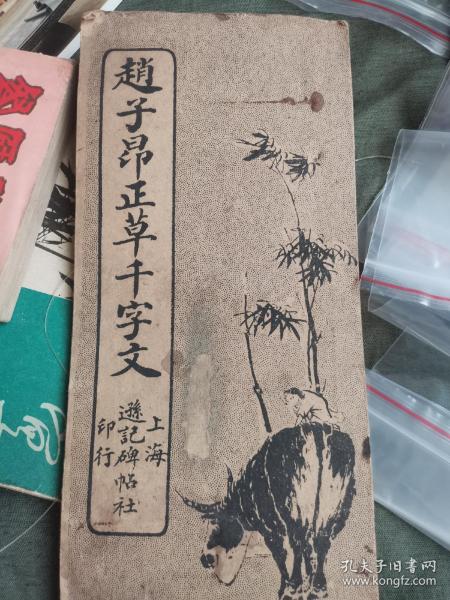 趙子昂正草千字文
上海
遜記碑帖社
印行
孔夫子旧书网
www.kongfz.com